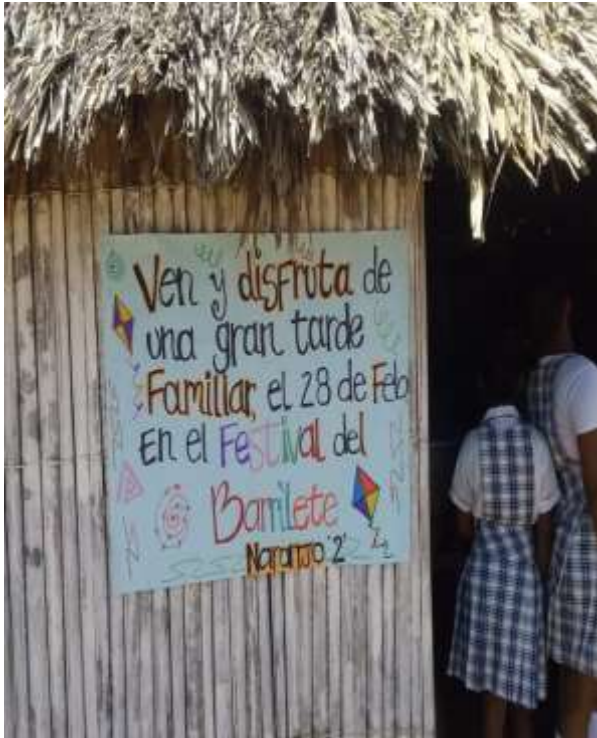 Ven y disfruta de
una gran tarde
Familiar, el 28 de Feb
En el Festival del
Barrilete
Naranjo '2'